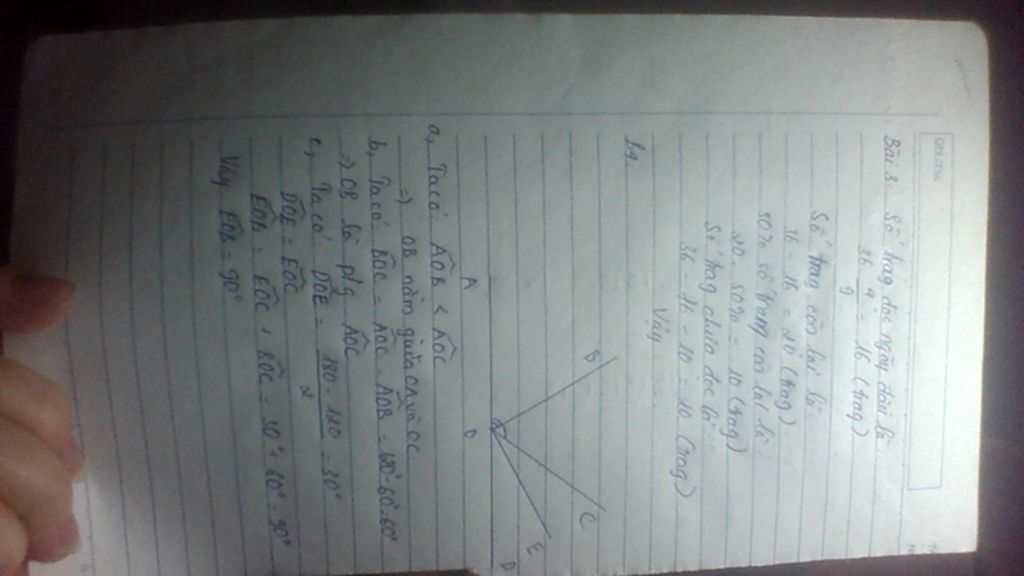 Bài 3. Số trag đọc ngày đầu là
36 . 4/9 = 16 (trag)
Số trag còn lại là
36 - 16 = 20 (trag)
50% số trang còn lại là
20 . 50% = 10 (trag)
Số trag chưa đọc là
36 - 16 - 10 = 10 (trag)
Vậy
B4:
B
C
E
A O D
a, Ta có AOB < AOC
=) OB nằm giữa OA và OC
b, Ta có BOC = AOC - AOB = 120°-60°=60°
=) OB là p/g AOC
c, Ta có DOE = (180 - 120)/2 = 30°
DOE = EOC
EOB = EOC + BOC = 30° + 60° = 90°
Vậy EOB = 90°